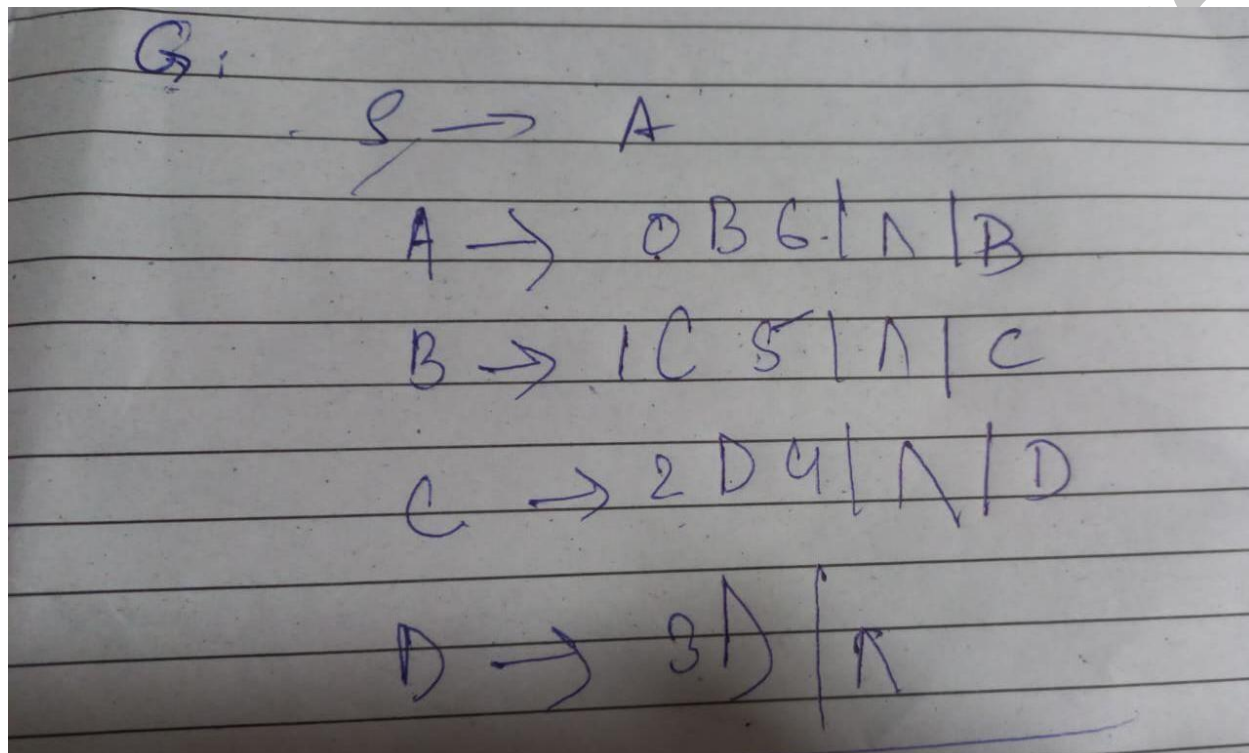 G:
S → A
A → 0B6 | Λ | B
B → 1C5 | Λ | C
C → 2D4 | Λ | D
D → 3D | Λ